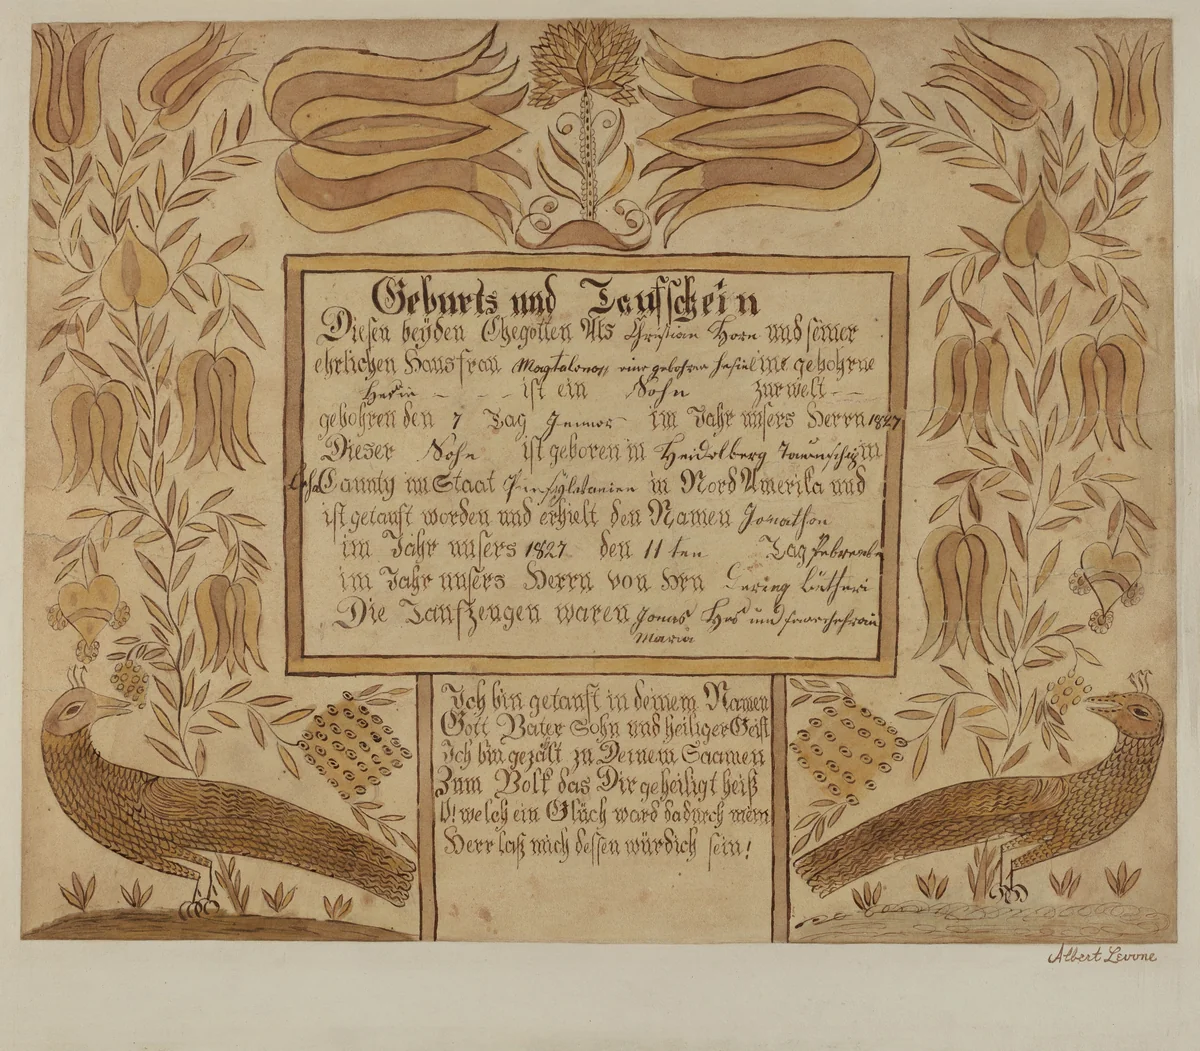 Geburts und Taufschein
Diesen beyden Ehegotten Als Christian Horn und seiner
ehrlichen Hausfrau Magtalena eine gebohrne
ist ein Sohn zur welt
gebohren den 7 Tag Jenner im Jahr unsers Herrn 1827
Dieser Sohn ist geboren in Heidelberg Taunschip in
Lecha Caunty im Staat Pensylvanien in Nord Amerika und
ist getauft worden und erhielt den Namen Jonathon
im Jahr unsers 1827 den 11 ten Tag
im Jahr unsers Herrn von Hrn
Die Taufzeugen waren Jonas Has und
Maria
Ich bin getauft in deinem Namen
Gott Vater Sohn und heiliger Geist
Ich bin gezält zu Deinem Saamen
Zum Volk das Dir geheiligt heiß
O! welch ein Glück ward dadurch mein
Herr laß mich dessen würdich sein!
Albert Levone